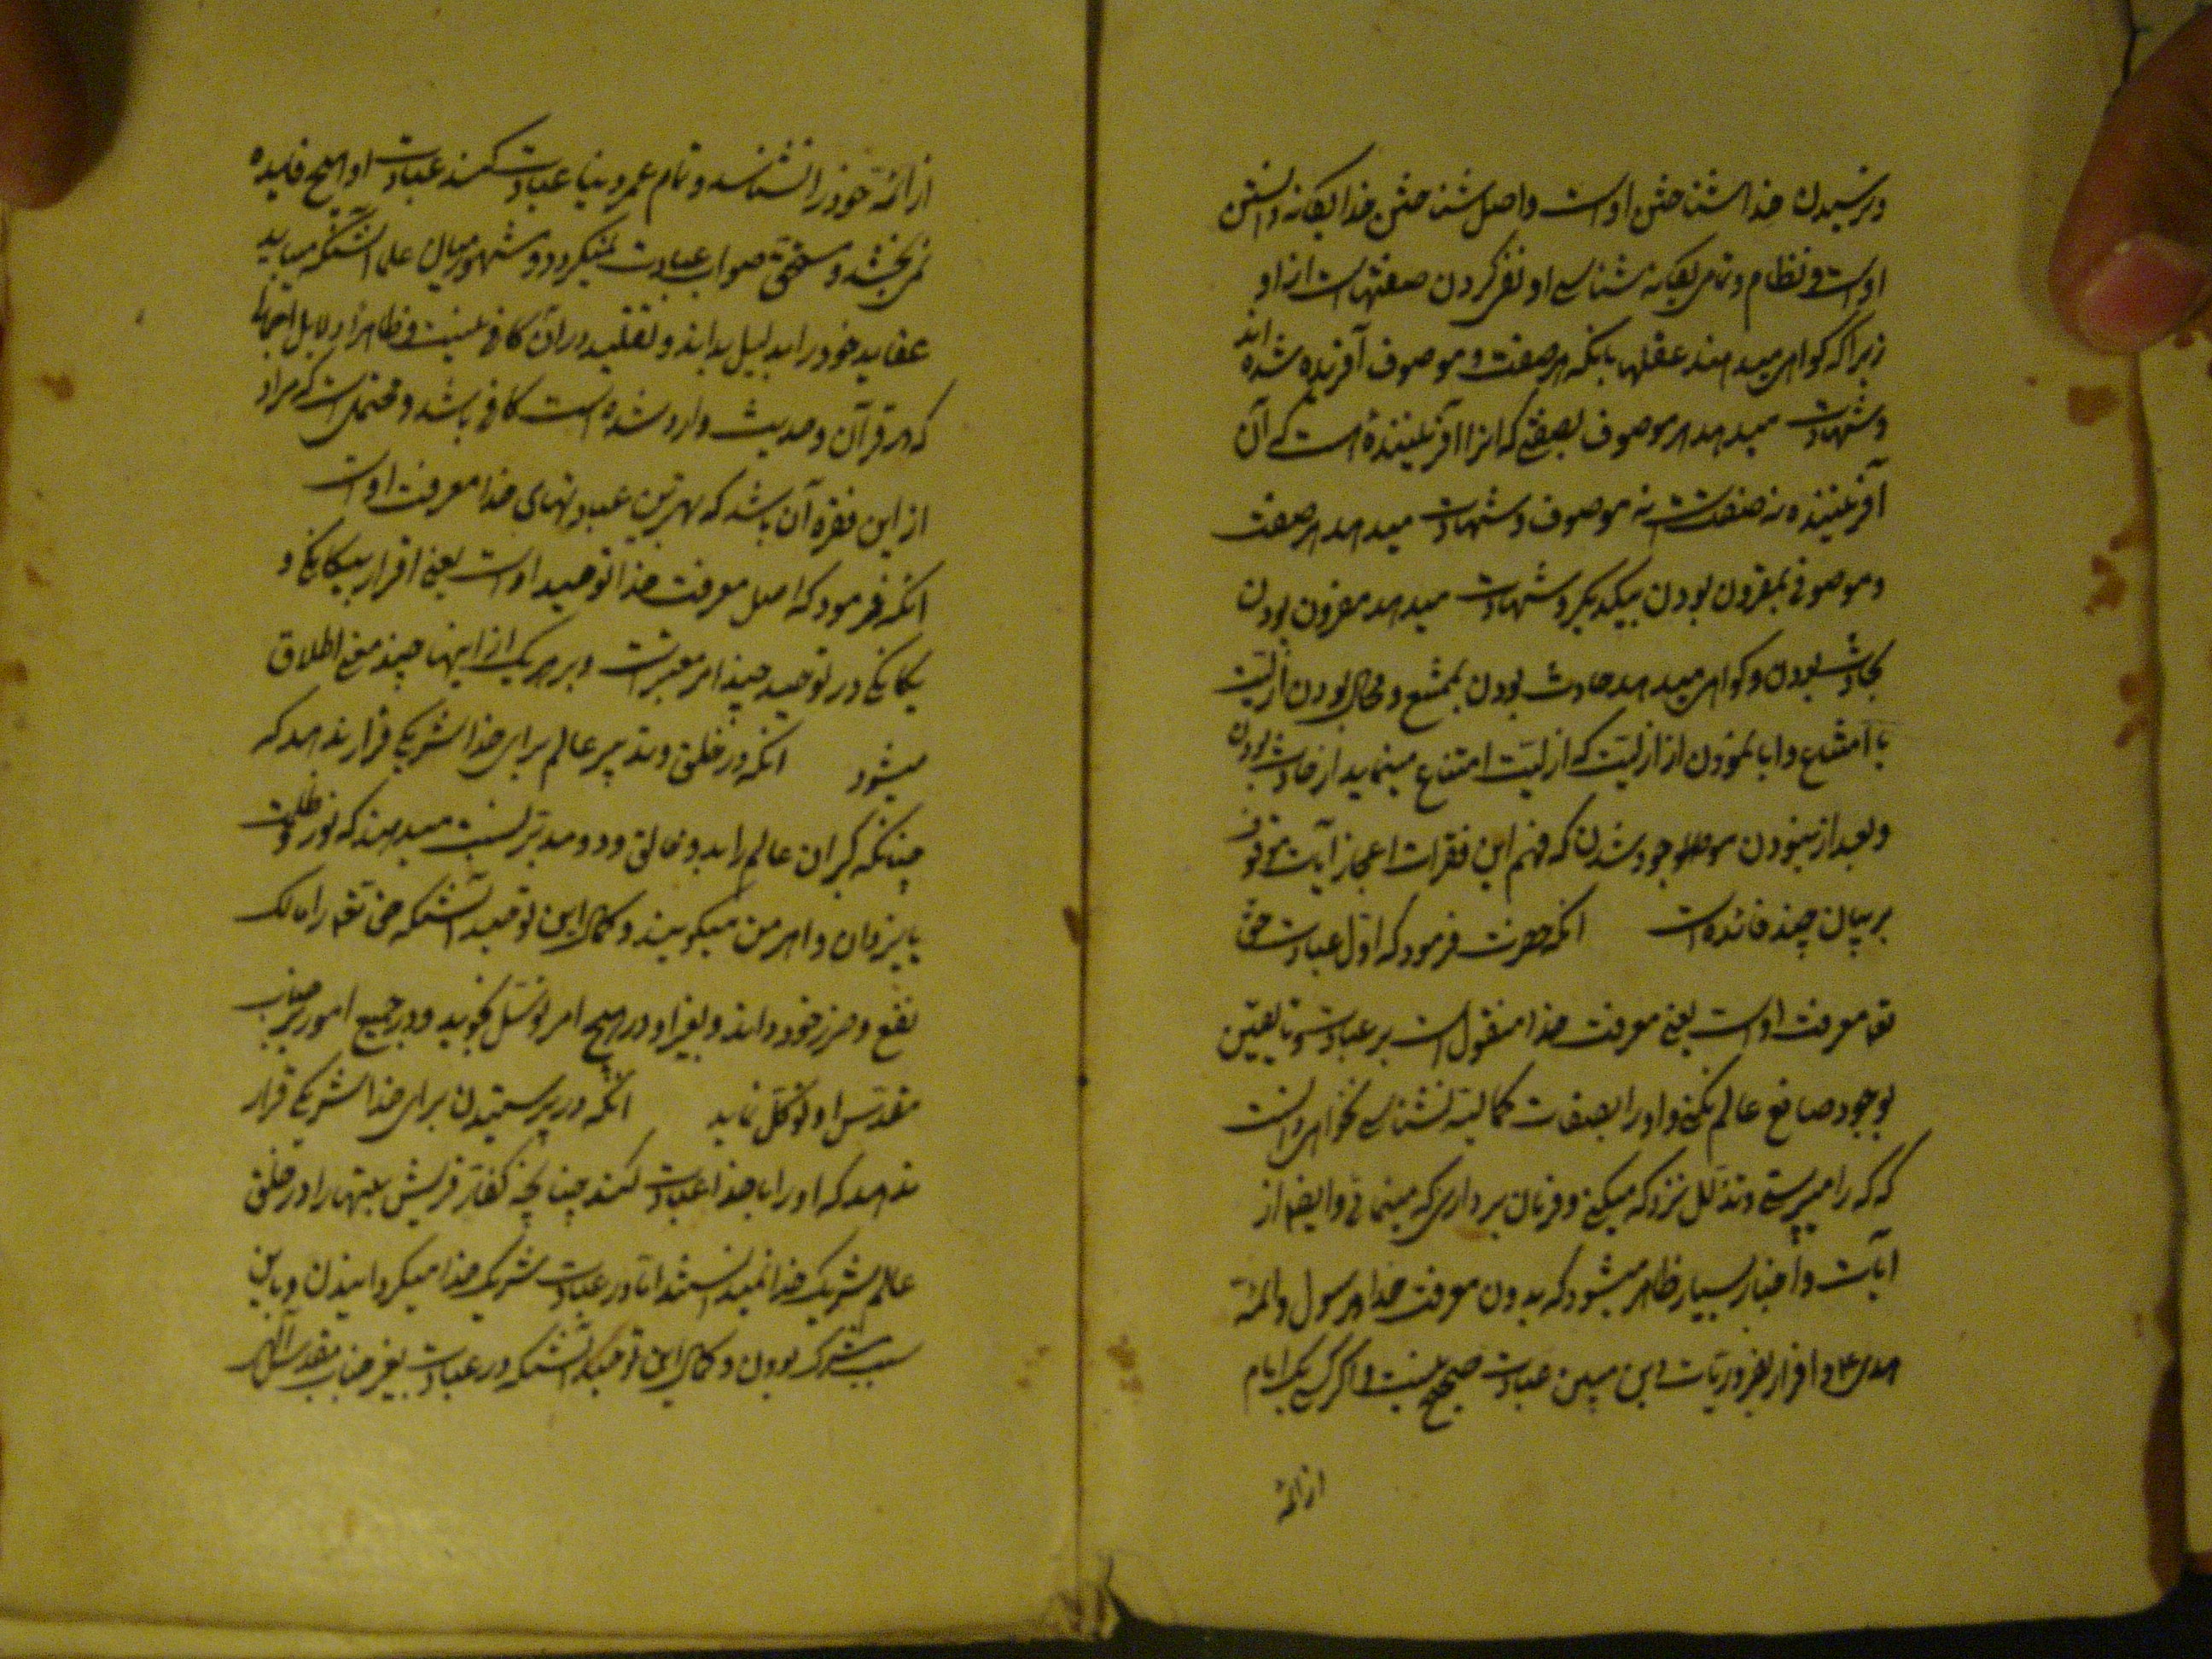 وپرسیدن خدا شناختن اوست واصل شناختن خدا یگانه دانستن
اوست ونظام وتمامی یگانه شناسی او نفی کردن صفتهاست از او
زیرا که گواهی میدهند عقلها بانکه هر صفت و موصوف آفریده شده اند
وشهادت میدهد هر موصوف بصفتی که انرا آفریننده است که آن
آفریننده نه صفتست نه موصوف وشهادت میدهد هر صفت
وموصوفی بمقرون بودن بیکدیکر وشهادت میدهد مقرون بودن
بحادث بودن وگواهی میدهد حادث بودن بممتنع و محال بودن ازلیت
با امتناع وابا نمودن از ازلیت که ازلیت امتناع مینماید از حادث بودن
وبعد از نبودن موجود شدن که فهم این فقرات اعجاز آیات موقوف
بر بیان چند فائده است انکه حضرت فرمود که اول عبادت حق
تعا معرفت اوست یعنی معرفت خدا مقدم است بر عبادت وتا یقین
بوجود صانع عالم نکنی و اورا بصفات کمالیه نشناسی نخواهی دانست
که که را میپرستی وتذلل نزد که میکنی وفرمان برداری که مینمائی وایضا از
ایات واخبار بسیار ظاهر میشود که بدون معرفت خدا ورسول وائمه
هدی ع واقرار بضروریات دین مبین عبادت صحیح نیست واگر کسی یک امام
از ائمه
از ائمه خود را نشناسد وتمام عمر دنیا عبادت کند عبادت او هیچ فایده
نمی بخشد ومستحق صواب عبادت نمیگردد ومشهور میان علما آنستکه میباید
عقاید خود را بدلیل بداند وتقلید در آن کافی نیست وظاهرا دلایل اجمالی
که در قرآن وحدیث وارد شده است کافی باشد ومحتمل است که مراد
از این فقره آن باشد که بهترین عبادتهای خدا معرفت اوست
انکه فرمود که اصل معرفت خدا توحید اوست یعنی اقرار بیگانگی و
یگانگی در توحید چند امر معتبر است وبر هر یک از اینها چند معنی اطلاق
میشود انکه در خلق وتدبیر عالم برای خدا شریکی قرار ندهد که
چنانکه گبران عالم را بدو خالق ودو مدبر نسبت میدهند که نور وظلمت
یا یزدان واهرمن میگویند وکمال این توحید آنستکه حق تعا را مالک
نفع وضرر خود داند وبغیر او در هیچ امر توسل نجوید ودر جمیع امور بر جناب
مقدس او توکل نماید انکه در پرستیدن برای خدا شریکی قرار
ندهد که اورا با خدا عبادت کند چنانچه کفار قریش بتها را در خلق
عالم شریک خدا نمیدانستند اما در عبادت شریک خدا میگردانیدن وباین
سبب مشرک بودن وکمال این توحید آنستکه در عبادت بغیر جناب مقدس الهی